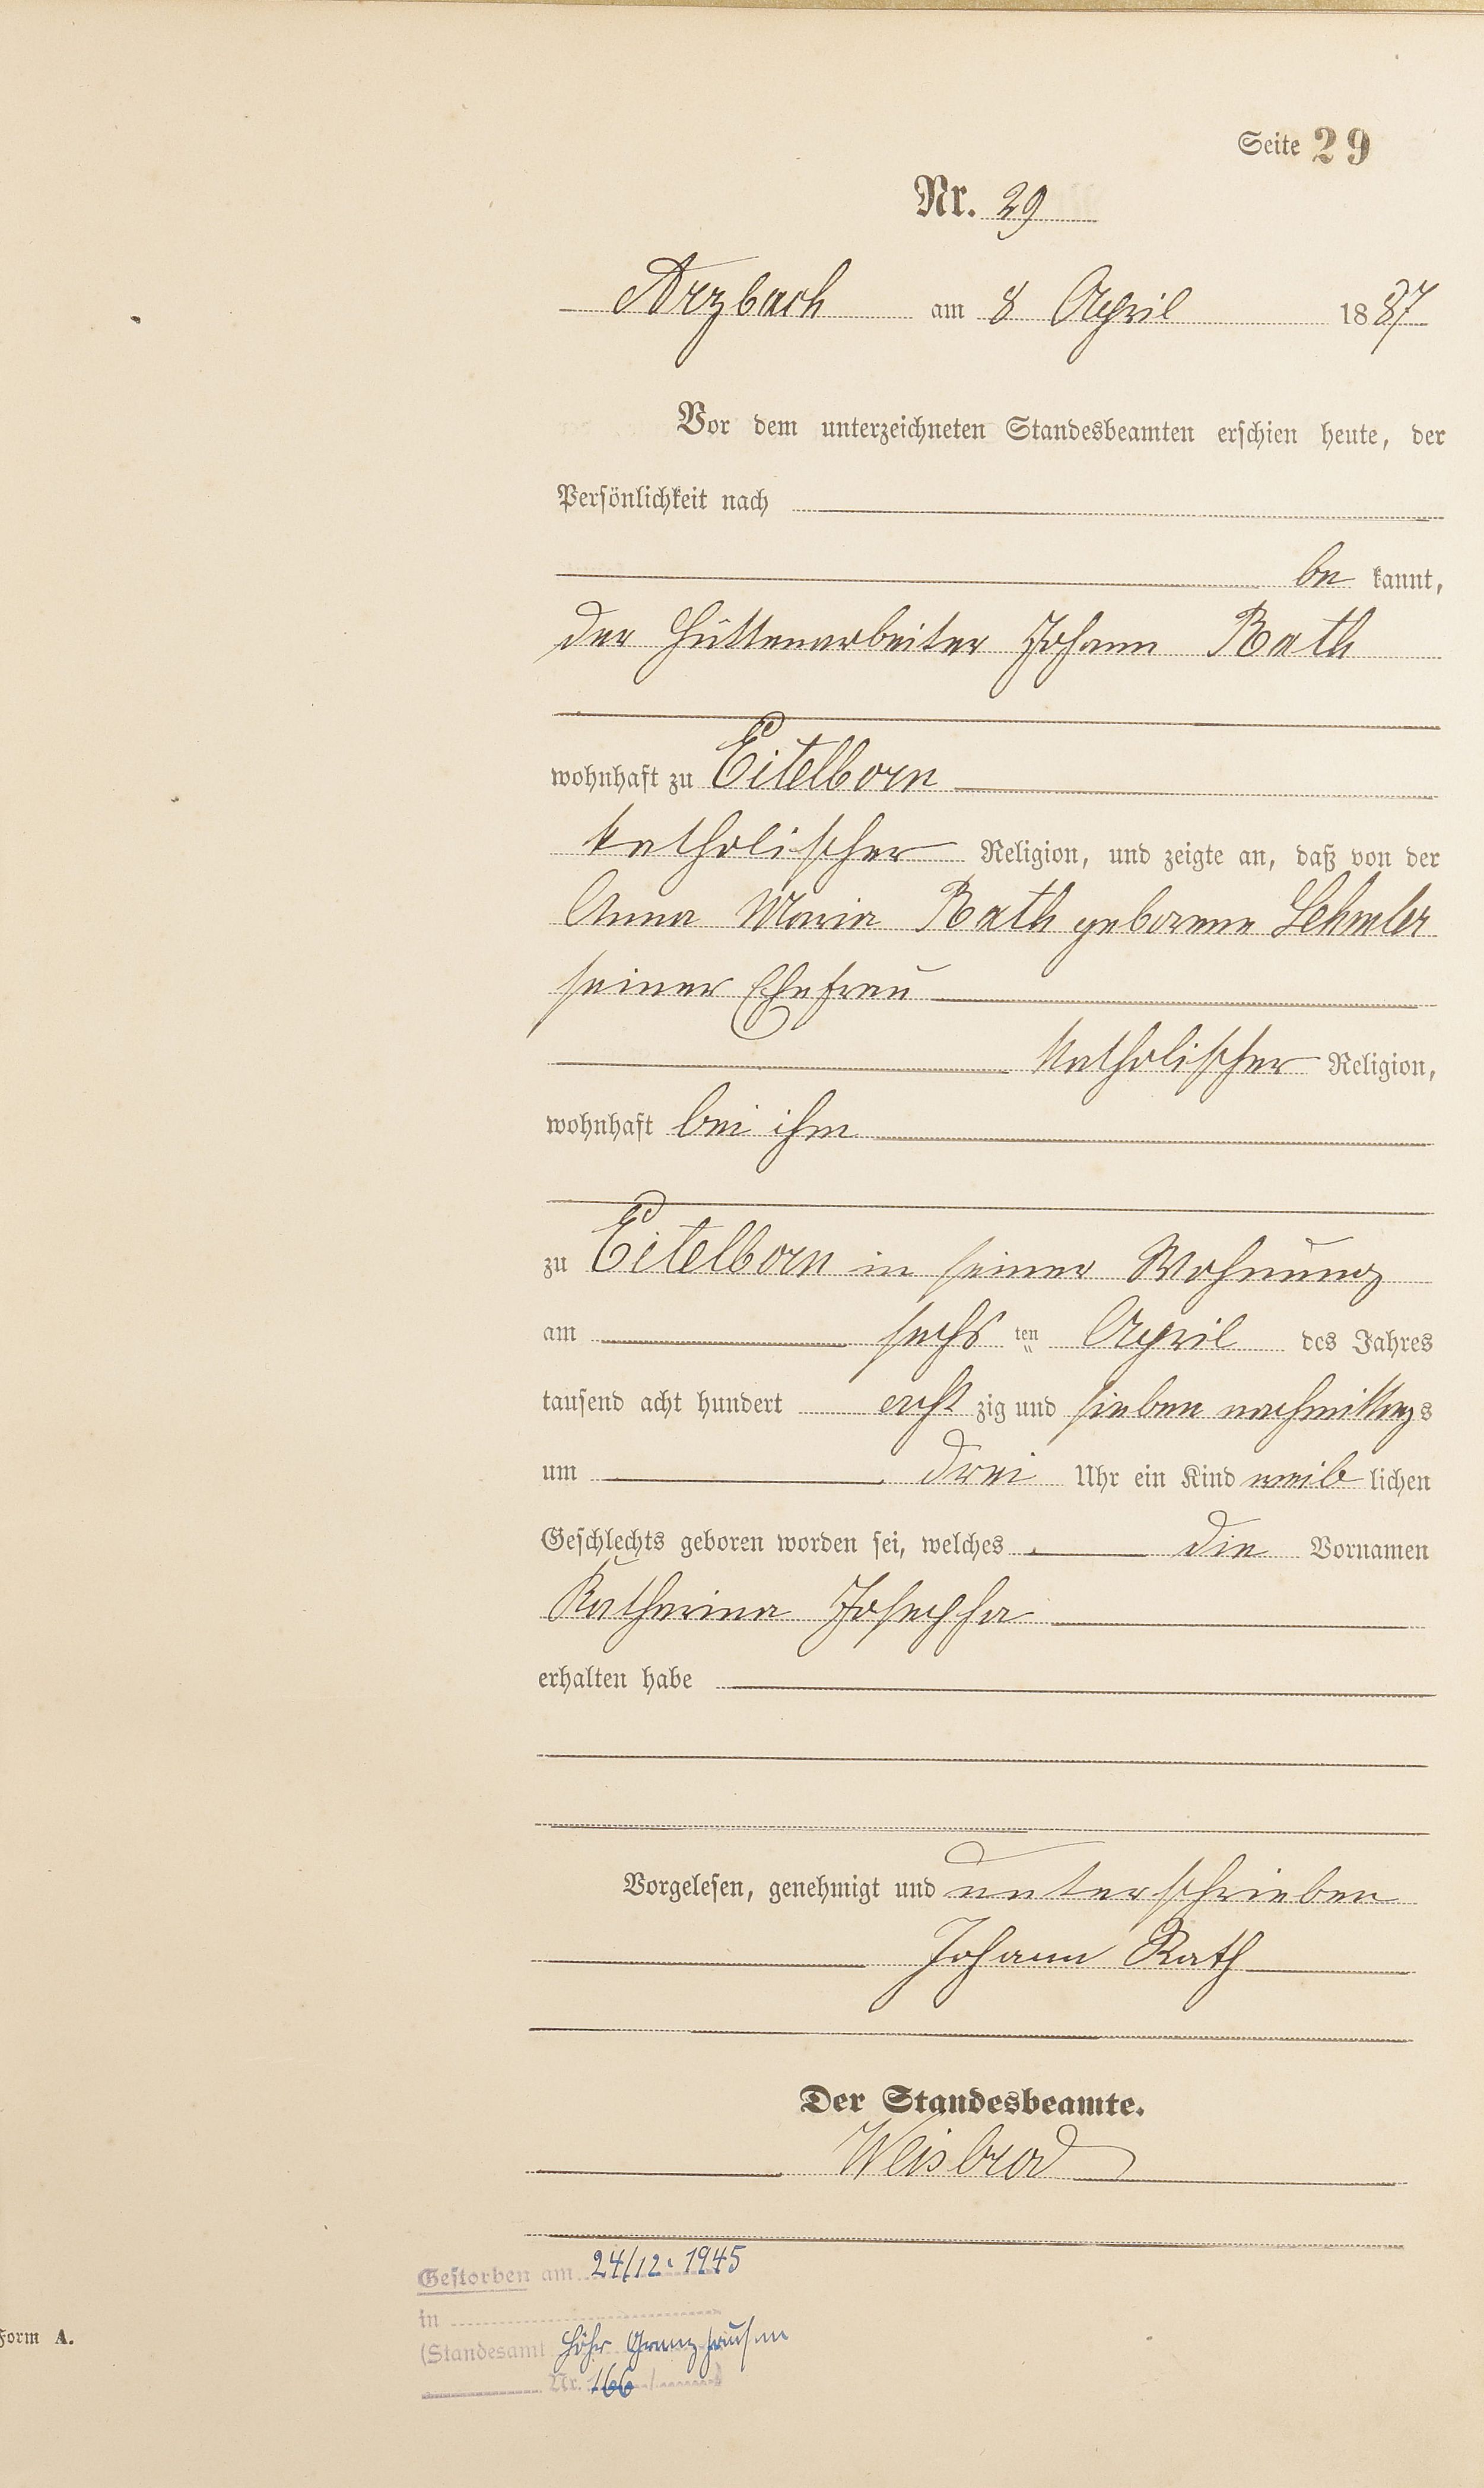 Seite 29
Nr. 29
Arzbach am 8 April 1887
Vor dem unterzeichneten Standesbeamten erschien heute, der
Persönlichkeit nach
be kannt,
der Hüttenarbeiter Johann Rath
wohnhaft zu Eitelborn
katholischer Religion, und zeigte an, daß von der
Anna Maria Rath geborene Lehmler
seiner Ehefrau
katholischer Religion,
wohnhaft bei ihm
zu Eitelborn in seiner Wohnung
am sechs ten April des Jahres
tausend acht hundert acht zig und sieben nachmittags
um drei Uhr ein Kind weib lichen
Geschlechts geboren worden sei, welches die Vornamen
Katharina Josepha
erhalten habe
Vorgelesen, genehmigt und unterschrieben
Johann Rath
Der Standesbeamte.
Weisbrod
Gestorben am 24/12. 1945
in
(Standesamt Höhr Grenzhausen
Nr. 166 / )
Form A.